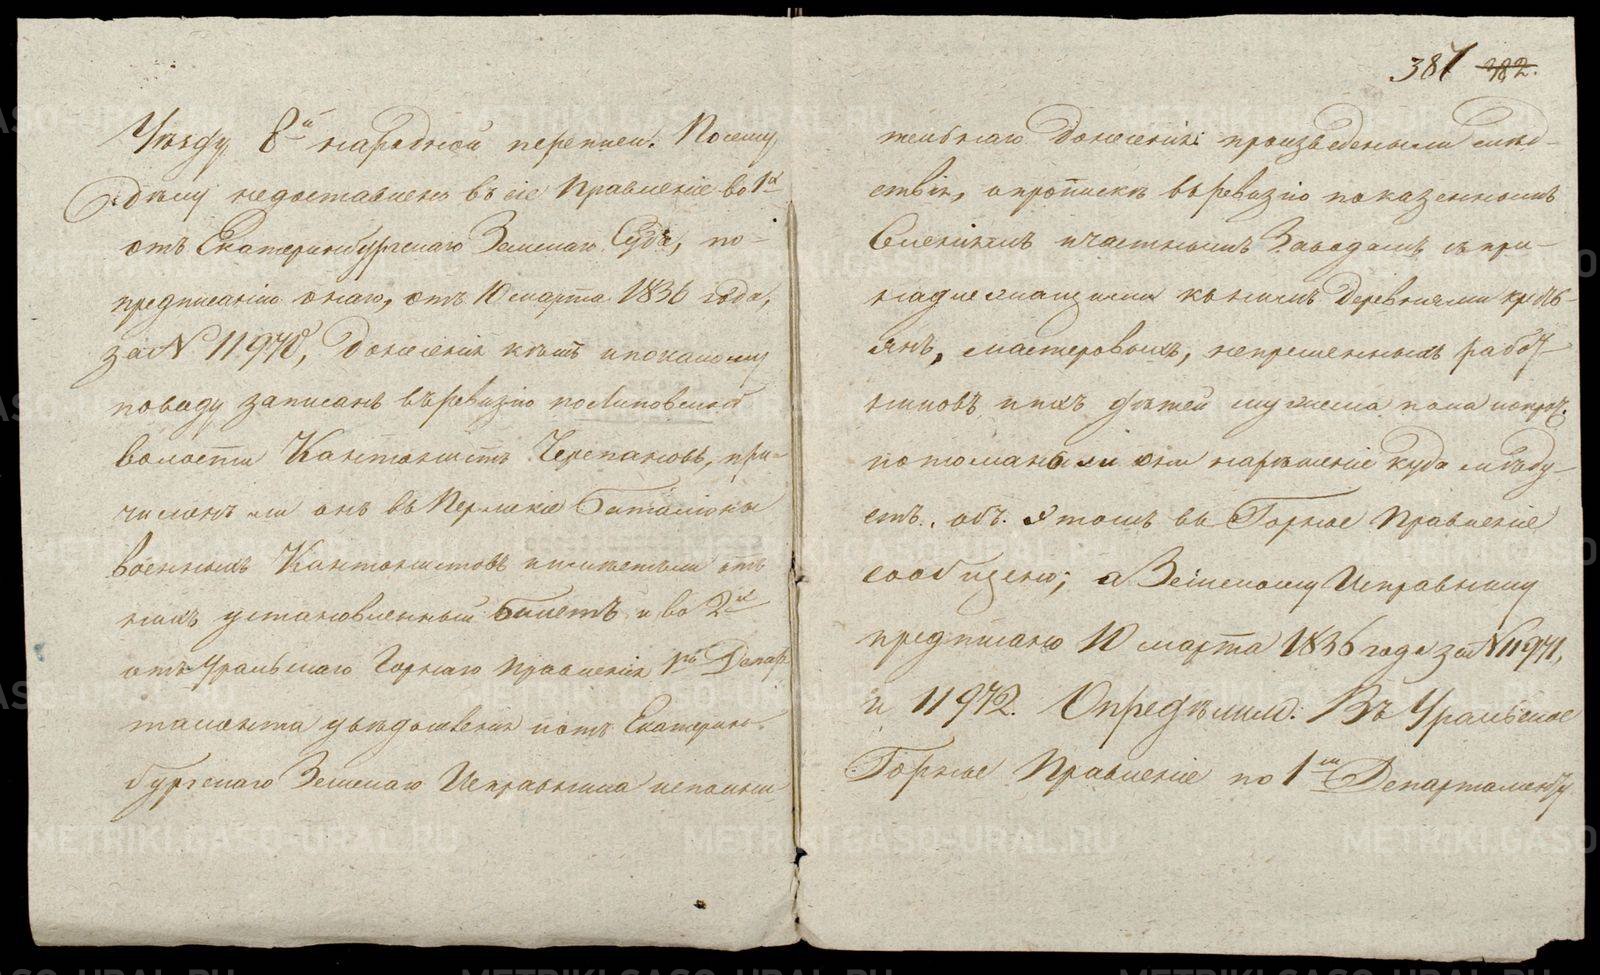 Уѣзду 8й народной переписи. Посему
Дѣлу недоставлено въ сіе Правленіе во 1х
отъ Екатеринбургскаго Земскаго Суда, по-
предписанію онаго, отъ 10 марта 1836 года,
за № 11970, Донесенія кѣмъ и по какому
поводу записанъ въ ревизію по Липовской
волости Кантонистъ Черепановъ, при-
численъ ли онъ въ Пермскіе Баталіоны
военныхъ Кантонистовъ и имѣетъ ли отъ
нихъ установленный билетъ и во 2х
отъ Уральскаго Горнаго Правленія 1го Депар-
тамента увѣдомленія и отъ Екатерин-
бургскаго Земскаго Исправника исполни-
387 382.
тельнаго Донесенія: произведеными слѣд-
ствія, о пропискѣ въ ревизію по казеннымъ
Селеніямъ и частнымъ Заводамъ съ при-
надлежащими къ нимъ Деревнями кресть-
янъ, мастеровыхъ, непременныхъ работ-
никовъ и ихъ дѣтей мужеска пола и проч.
потомъ ли они нарѣшеніе куда слѣду-
етъ, объ этомъ въ Горное Правленіе
сообщено; а Земскому Исправнику
предписано 10 марта 1836 года за № 11971,
и 11972. Опредѣлило: Въ Уральское
Горное Правленіе по 1му Департаменту
METRIKI.GASO-URAL.RU